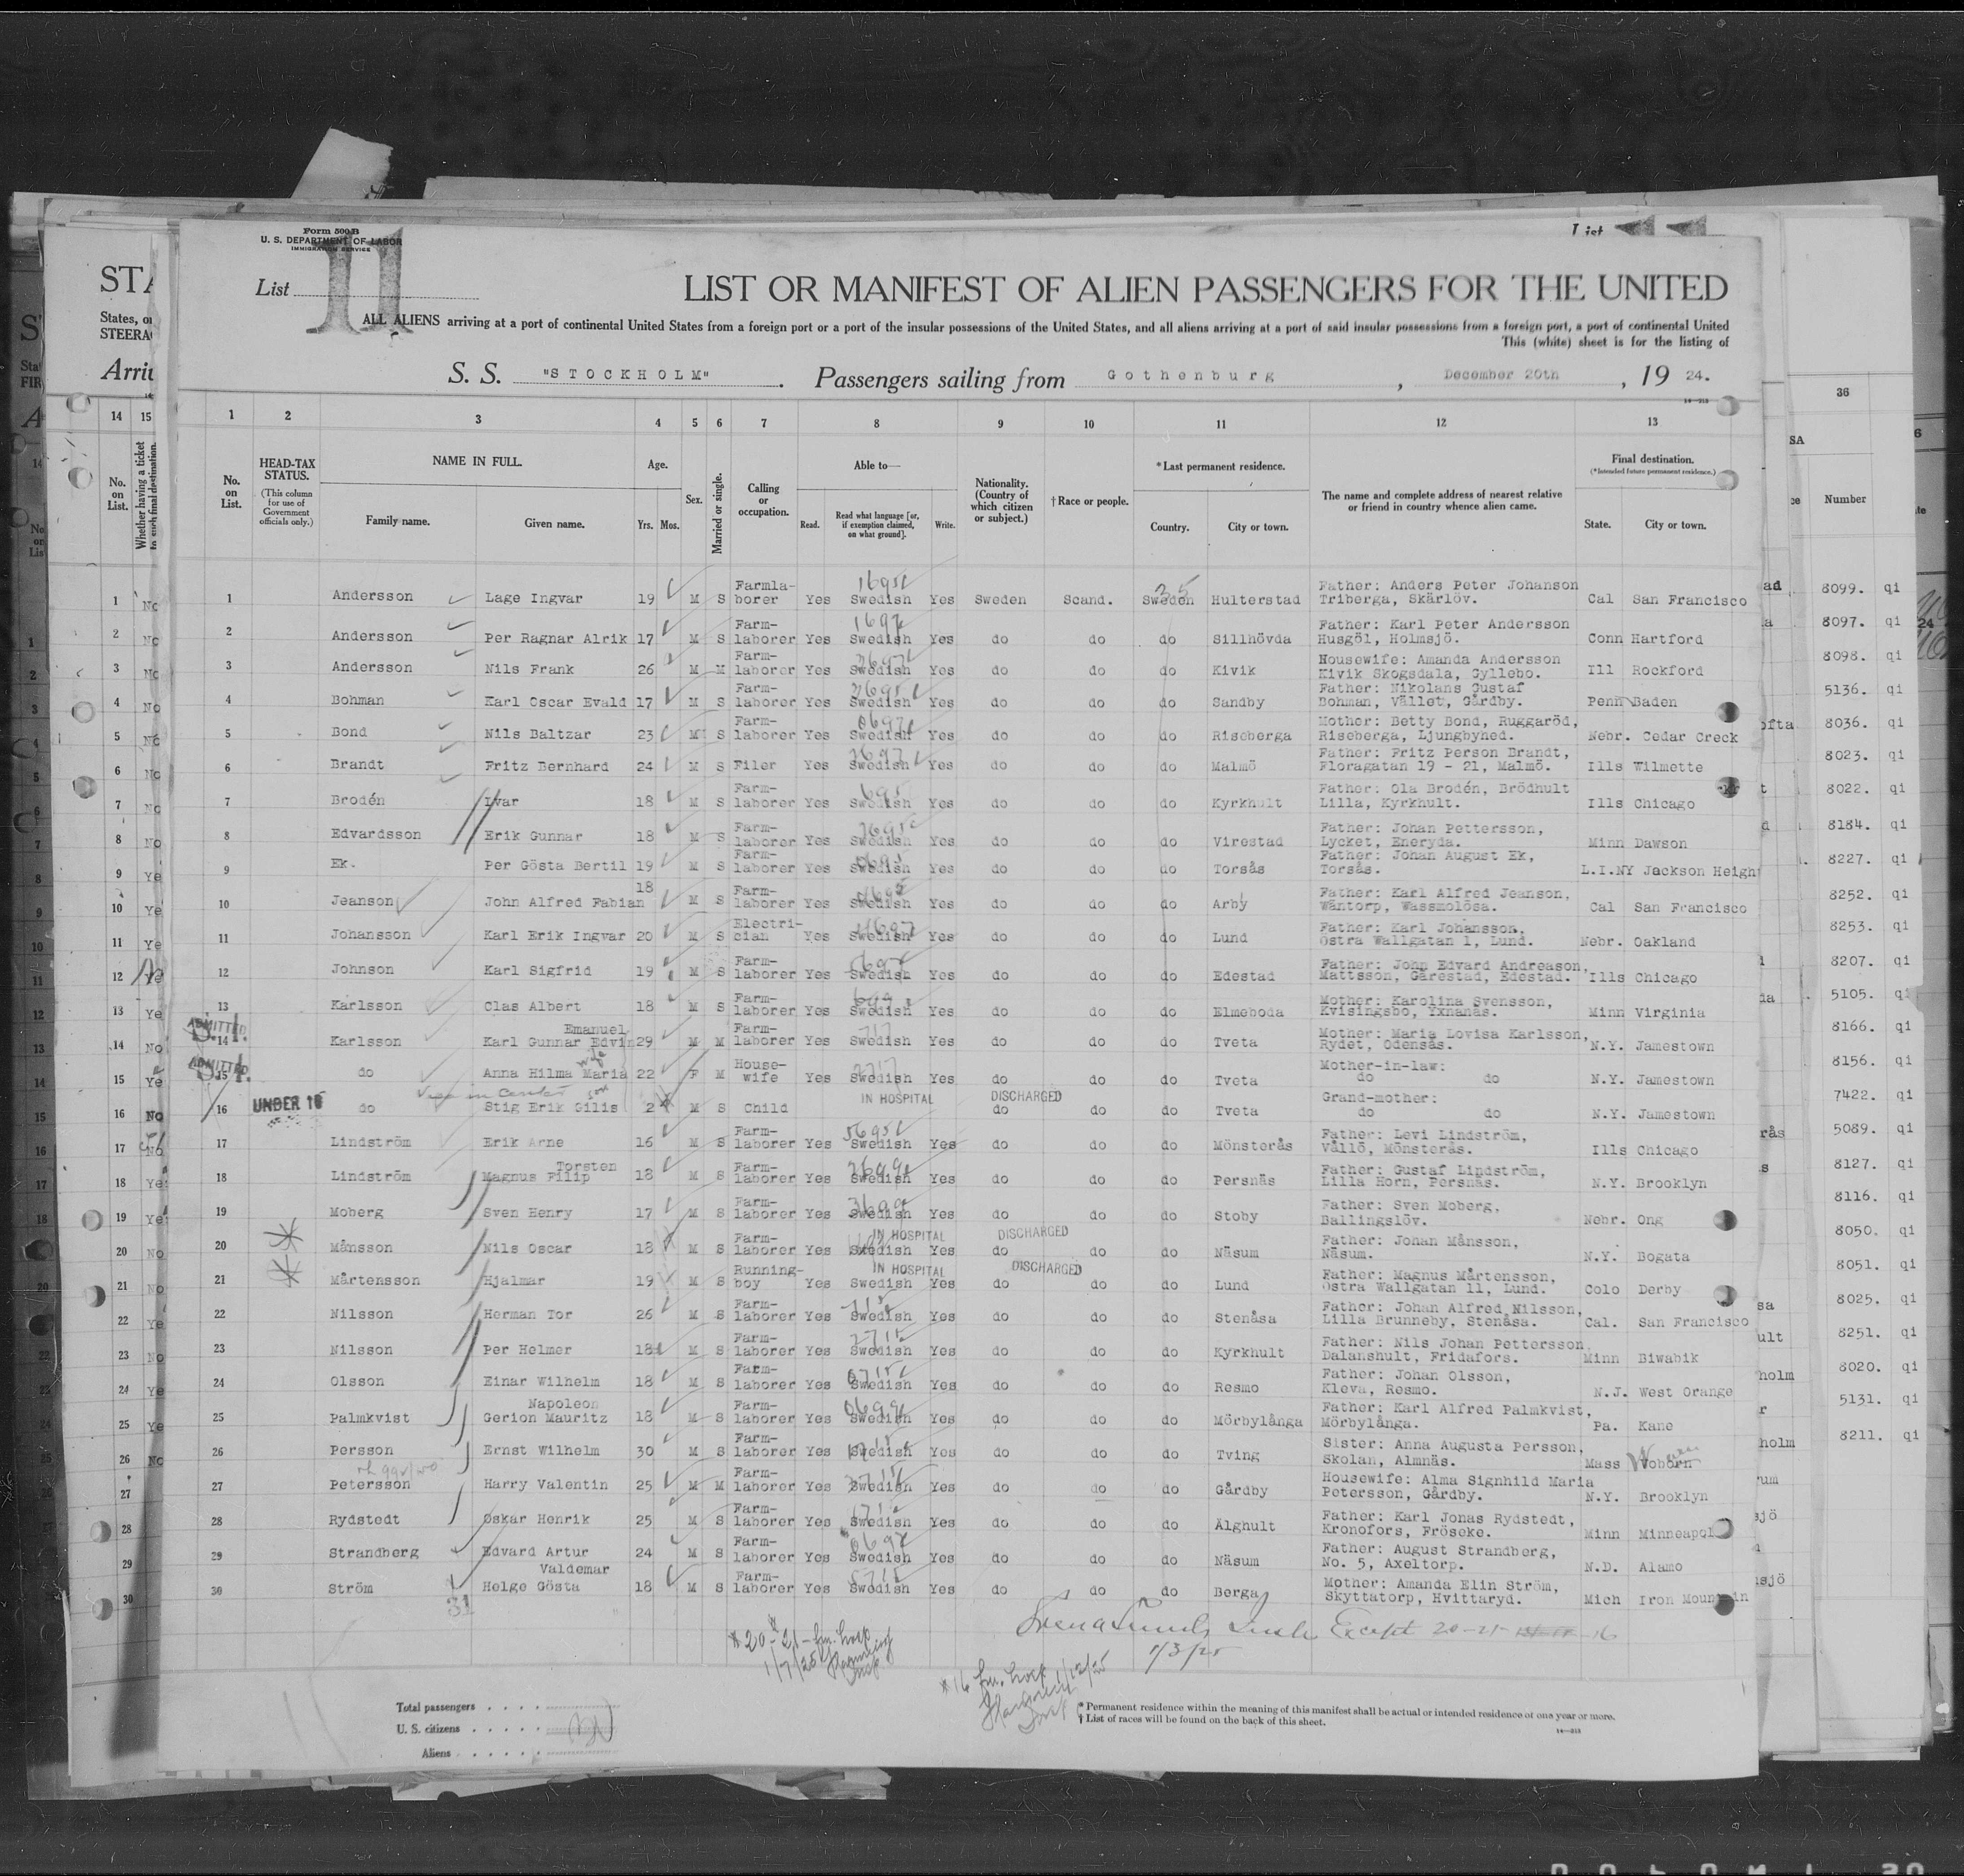 Form 500 B
U. S. DEPARTMENT OF LABOR
IMMIGRATION SERVICE
List 11
LIST OR MANIFEST OF ALIEN PASSENGERS FOR THE UNITED
ALL ALIENS arriving at a port of continental United States from a foreign port or a port of the insular possessions of the United States, and all aliens arriving at a port of said insular possessions from a foreign port, a port of continental United
This (white) sheet is for the listing of
S. S. "STOCKHOLM" . Passengers sailing from Gothenburg , December 20th , 19 24.
1 2 3 4 5 6 7 8 9 10 11 12 13
No. on List. HEAD-TAX STATUS. (This column for use of Government officials only.) NAME IN FULL. Family name. Given name. Age. Yrs. Mos. Sex. Married or single. Calling or occupation. Able to— Read. Read what language [or, if exemption claimed, on what ground]. Write. Nationality. (Country of which citizen or subject.) †Race or people. *Last permanent residence. Country. City or town. The name and complete address of nearest relative or friend in country whence alien came. Final destination. (*Intended future permanent residence.) State. City or town.
1 Andersson Lage Ingvar 19 M S Farmla-borer Yes Swedish Yes Sweden Scand. Sweden Hulterstad Father: Anders Peter Johanson Triberga, Skärlöv. Cal San Francisco
2 Andersson Per Ragnar Alrik 17 M S Farm-laborer Yes Swedish Yes do do do Sillhövda Father: Karl Peter Andersson Husgöl, Holmsjö. Conn Hartford
3 Andersson Nils Frank 26 M M Farm-laborer Yes Swedish Yes do do do Kivik Housewife: Amanda Andersson Kivik Skogsdala, Gyllebo. Ill Rockford
4 Bohman Karl Oscar Evald 17 M S Farm-laborer Yes Swedish Yes do do do Sandby Father: Nikolans Gustaf Bohman, Vället, Gårdby. Penn Baden
5 Bond Nils Baltzar 23 M S Farm-laborer Yes Swedish Yes do do do Riseberga Mother: Betty Bond, Ruggaröd, Riseberga, Ljungbyhed. Nebr. Cedar Creck
6 Brandt Fritz Bernhard 24 M S Filer Yes Swedish Yes do do do Malmö Father: Fritz Person Brandt, Floragatan 19 - 21, Malmö. Ills Wilmette
7 Brodén Ivar 18 M S Farm-laborer Yes Swedish Yes do do do Kyrkhult Father: Ola Brodén, Brödhult Lilla, Kyrkhult. Ills Chicago
8 Edvardsson Erik Gunnar 18 M S Farm-laborer Yes Swedish Yes do do do Virestad Father: Johan Pettersson, Lycket, Eneryda. Minn Dawson
9 Ek. Per Gösta Bertil 19 M S Farm-laborer Yes Swedish Yes do do do Torsås Father: Johan August Ek, Torsås. L.I.NY Jackson Heigh
10 Jeanson John Alfred Fabian 18 M S Farm-laborer Yes Swedish Yes do do do Arby Father: Karl Alfred Jeanson, Wäntorp, Wassmolösa. Cal San Francisco
11 Johansson Karl Erik Ingvar 20 M S Electri-cian Yes Swedish Yes do do do Lund Father: Karl Johansson, Östra Wallgatan 1, Lund. Nebr. Oakland
12 Johnson Karl Sigfrid 19 M S Farm-laborer Yes Swedish Yes do do do Edestad Father: John Edvard Andreason, Mattsson, Gärestad, Edestad. Ills Chicago
13 Karlsson Clas Albert 18 M S Farm-laborer Yes Swedish Yes do do do Elmeboda Mother: Karolina Svensson, Kvisingsbo, Yxnanäs. Minn Virginia
ADMITTED 14 Karlsson Karl Gunnar Edvin Emanuel 29 M M Farm-laborer Yes Swedish Yes do do do Tveta Mother: Maria Lovisa Karlsson, Rydet, Odensås. N.Y. Jamestown
ADMITTED 15 do Anna Hilma Maria wife 22 F M House-wife Yes Swedish Yes do do do Tveta Mother-in-law: do do N.Y. Jamestown
16 UNDER 16 do Stig Erik Gilis son 2 M S Child IN HOSPITAL DISCHARGED do do do Tveta Grand-mother: do do N.Y. Jamestown
17 Lindström Erik Arne 16 M S Farm-laborer Yes Swedish Yes do do do Mönsterås Father: Levi Lindström, Vållö, Mönsterås. Ills Chicago
18 Lindström Magnus Filip Torsten 18 M S Farm-laborer Yes Swedish Yes do do do Persnäs Father: Gustaf Lindström, Lilla Horn, Persnäs. N.Y. Brooklyn
19 Moberg Sven Henry 17 M S Farm-laborer Yes Swedish Yes do do do Stoby Father: Sven Moberg, Ballingslöv. Nebr. Ong
20 Månsson Nils Oscar 18 M S Farm-laborer Yes Swedish Yes IN HOSPITAL DISCHARGED do do do Näsum Father: Johan Månsson, Näsum. N.Y. Bogata
21 Mårtensson Hjalmar 19 M S Running-boy Yes Swedish Yes IN HOSPITAL DISCHARGED do do do Lund Father: Magnus Mårtensson, Östra Wallgatan 11, Lund. Colo Derby
22 Nilsson Herman Tor 26 M S Farm-laborer Yes Swedish Yes do do do Stenåsa Father: Johan Alfred Nilsson, Lilla Brunneby, Stenåsa. Cal. San Francisco
23 Nilsson Per Helmer 18 M S Farm-laborer Yes Swedish Yes do do do Kyrkhult Father: Nils Johan Pettersson, Dalanshult, Fridafors. Minn Biwabik
24 Olsson Einar Wilhelm 18 M S Farm-laborer Yes Swedish Yes do do do Resmo Father: Johan Olsson, Kleva, Resmo. N.J. West Orange
25 Palmkvist Gerion Mauritz Napoleon 18 M S Farm-laborer Yes Swedish Yes do do do Mörbylånga Father: Karl Alfred Palmkvist, Mörbylånga. Pa. Kane
26 Persson Ernst Wilhelm 30 M S Farm-laborer Yes Swedish Yes do do do Tving Sister: Anna Augusta Persson, Skolan, Almnäs. Mass Woborn
27 Petersson Harry Valentin 25 M M Farm-laborer Yes Swedish Yes do do do Gårdby Housewife: Alma Signhild Maria Petersson, Gårdby. N.Y. Brooklyn
28 Rydstedt Oskar Henrik 25 M S Farm-laborer Yes Swedish Yes do do do Älghult Father: Karl Jonas Rydstedt, Kronofors, Fröseke. Minn Minneapol
29 Strandberg Edvard Artur 24 M S Farm-laborer Yes Swedish Yes do do do Näsum Father: August Strandberg, No. 5, Axeltorp. N.D. Alamo
30 Ström Helge Gösta Valdemar 18 M S Farm-laborer Yes Swedish Yes do do do Berga Mother: Amanda Elin Ström, Skyttatorp, Hvittaryd. Mich Iron Mountain
31
Except 20-21 16
1/3/25
1/7/25
1/12/25
Total passengers
U. S. citizens
Aliens
* Permanent residence within the meaning of this manifest shall be actual or intended residence of one year or more.
† List of races will be found on the back of this sheet.
STA
States, or
STEERA
Arriv
14 15
No. on List.
Whether having a ticket to such final destination.
36
Number
8099. qi
8097. qi
8098. qi
5136. qi
8036. qi
8023. qi
8022. qi
8184. qi
8227. qi
8252. qi
8253. qi
8207. qi
5105. qi
8166. qi
8156. qi
7422. qi
5089. qi
8127. qi
8116. qi
8050. qi
8051. qi
8025. qi
8251. qi
8020. qi
5131. qi
8211. qi